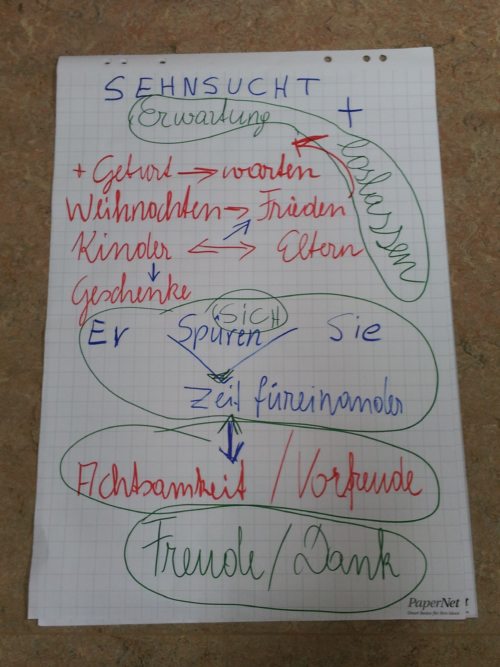 SEHNSUCHT
Erwartung + loslassen
+ Geburt → warten
Weihnachten → Frieden
Kinder ↔ Eltern
Geschenke
SICH
Er Spüren Sie
Zeit füreinander
Achtsamkeit / Vorfreude
Freude / Dank
PaperNet